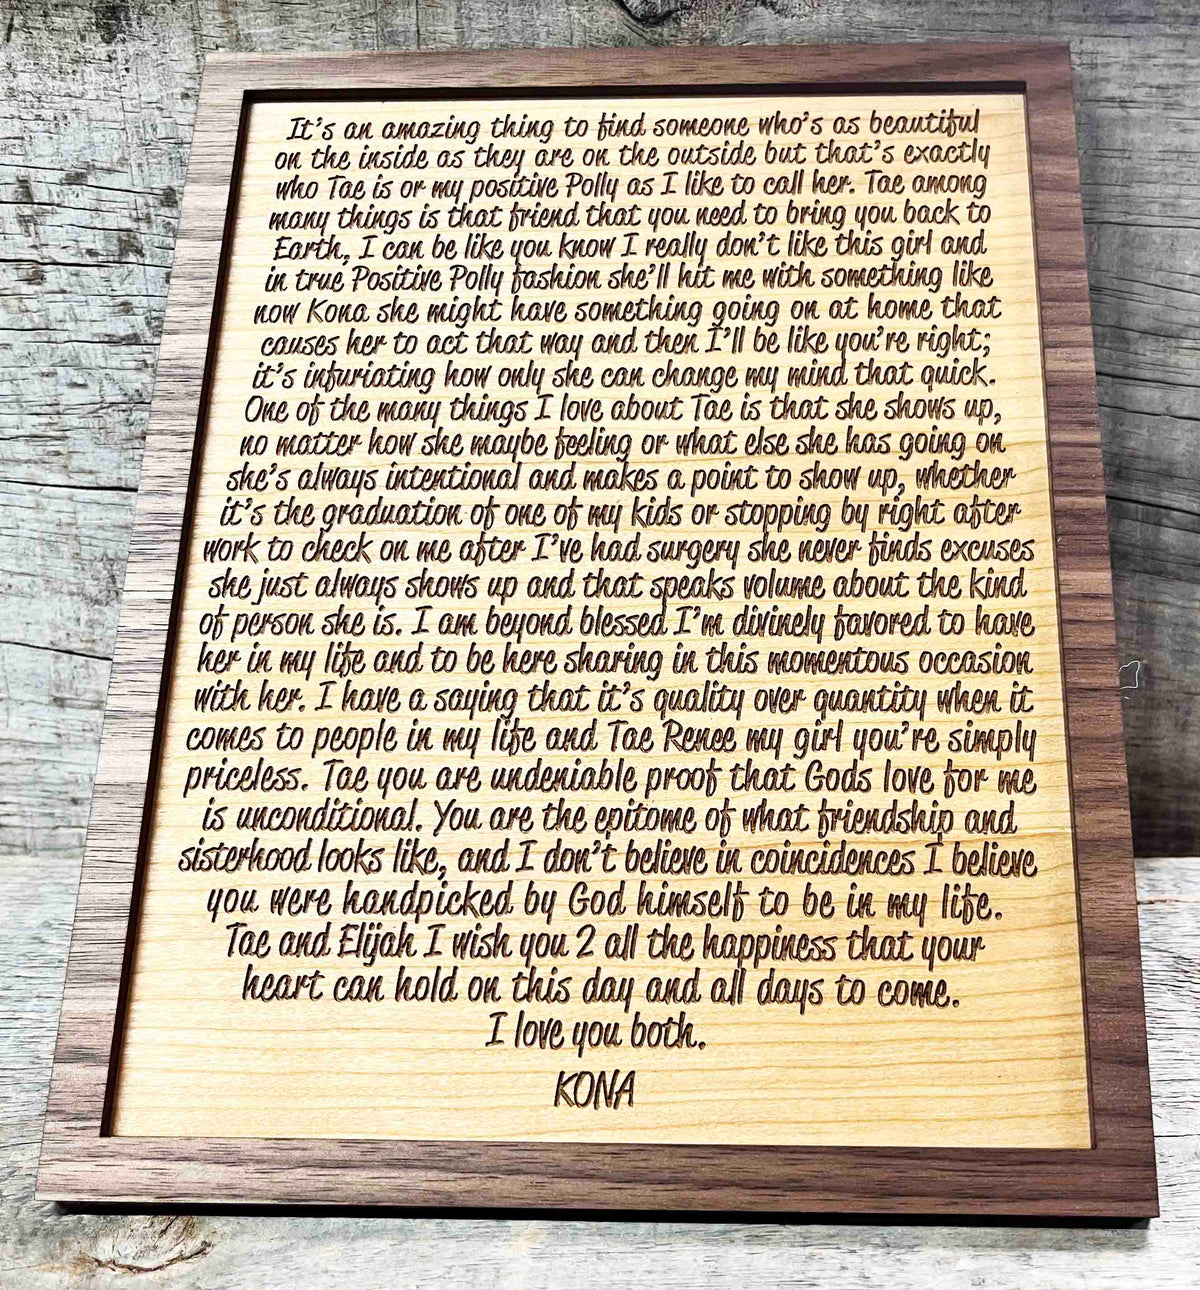 It's an amazing thing to find someone who's as beautiful
on the inside as they are on the outside but that's exactly
who Tae is or my positive Polly as I like to call her. Tae among
many things is that friend that you need to bring you back to
Earth, I can be like you know I really don't like this girl and
in true Positive Polly fashion she'll hit me with something like
now Kona she might have something going on at home that
causes her to act that way and then I'll be like you're right;
it's infuriating how only she can change my mind that quick.
One of the many things I love about Tae is that she shows up,
no matter how she maybe feeling or what else she has going on
she's always intentional and makes a point to show up, whether
it's the graduation of one of my kids or stopping by right after
work to check on me after I've had surgery she never finds excuses
she just always shows up and that speaks volume about the kind
of person she is. I am beyond blessed I'm divinely favored to have
her in my life and to be here sharing in this momentous occasion
with her. I have a saying that it's quality over quantity when it
comes to people in my life and Tae Renee my girl you're simply
priceless. Tae you are undeniable proof that Gods love for me
is unconditional. You are the epitome of what friendship and
sisterhood looks like, and I don't believe in coincidences I believe
you were handpicked by God himself to be in my life.
Tae and Elijah I wish you 2 all the happiness that your
heart can hold on this day and all days to come.
I love you both.
KONA